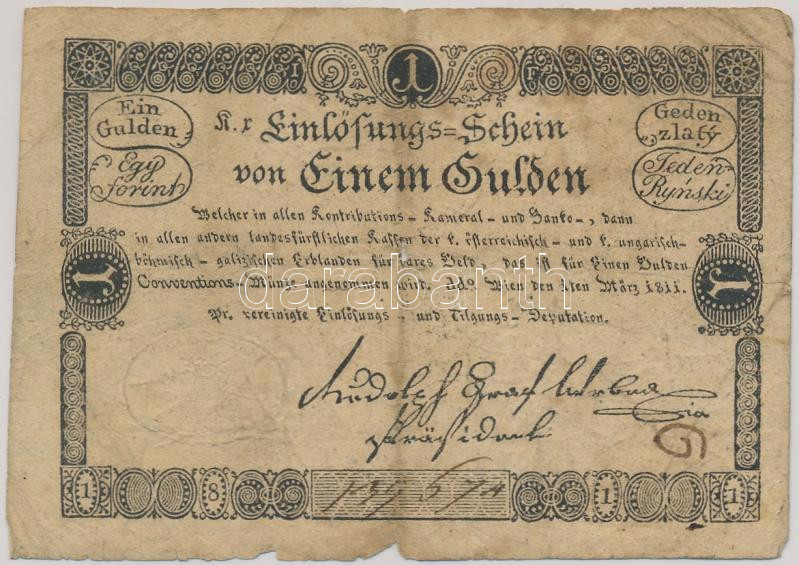 1 F
1
Ein
Gulden
Egy
forint
Geden
zlatý
Jeden
Ryński
K. r Einlösungs=Schein
von Einem Gulden
Welcher in allen Kontributions- Kameral- und Banko-, dann
in allen andern landesfürstlichen Kassen der k. österreichisch- und k. ungarisch-
böhmisch- galizischen Erblanden für bares Geld, das ist für Einen Gulden
Conventions- Münze angenommen wird. Ddo. Wien den 1ten März 1811.
Pr. vereinigte Einlösungs- und Tilgungs- Deputation.
1
1
darabanth
Rudolph Graf Wrbna
Präsident
G
1 8 1 1